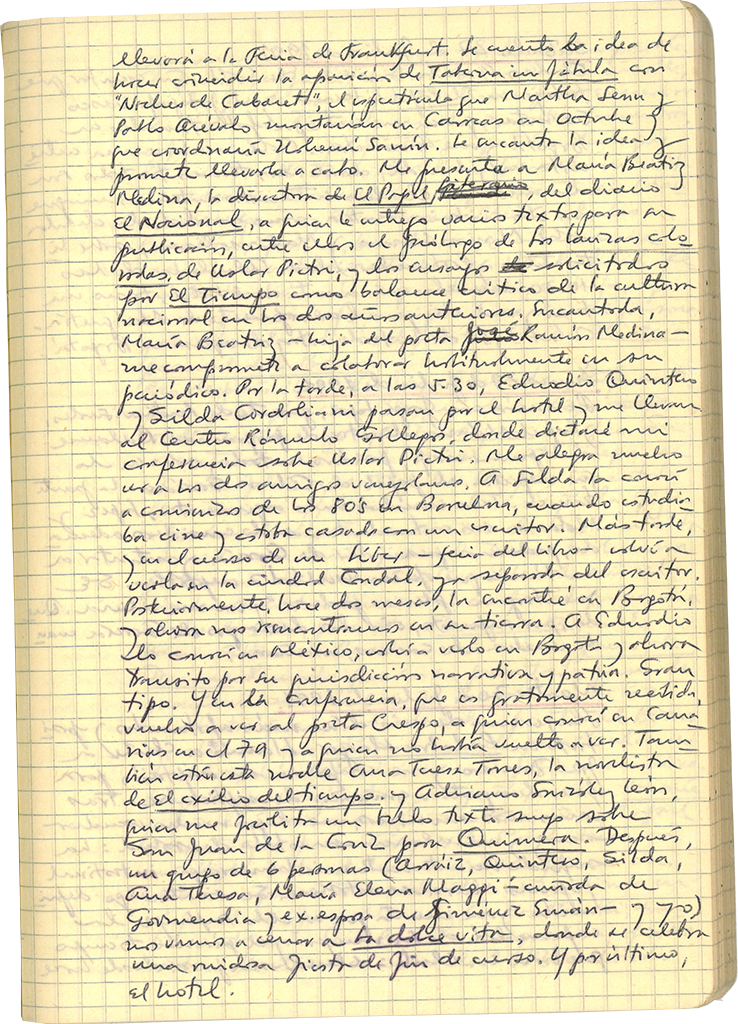 llevará a la Feria de Frankfurt. Le cuento la idea de
hacer coincidir la aparición de Taberna in fábula con
"Noches de Cabaret", el espectáculo que Martha Senn y
Pablo Arévalo montarían en Caracas en Octubre y
que coordinaría Ushemi Sanín. Le encanta la idea y
promete llevarla a cabo. Me presenta a María Beatriz
Medina, la directora de El Papel Literario, del diario
El Nacional, a quien le entrego varios textos para su
publicación, entre ellos el prólogo de Las lanzas colo-
radas, de Uslar Pietri, y los ensayos de solicitados
por El Tiempo como balance crítico de la cultura
nacional en los dos años anteriores. Encantada,
María Beatriz – hija del poeta José Ramón Medina –
me compromete a colaborar habitualmente en su
periódico. Por la tarde, a las 5.30, Ednodio Quintero
y Silda Cordoliani pasan por el hotel y me llevan
al Centro Rómulo Gallegos, donde dictaré mi
conferencia sobre Uslar Pietri. Me alegra mucho
ver a los dos amigos venezolanos. A Silda la conocí
a comienzos de los 80's en Barcelona, cuando estudia-
ba cine y estaba casada con un escritor. Más tarde,
y en el curso de un Líber – feria del libro – volví a
verla en la ciudad Condal, ya separada del escritor.
Posteriormente, hace dos meses, la encontré en Bogotá,
y ahora nos reencontramos en su tierra. A Ednodio
lo conocí en México, volví a verlo en Bogotá y ahora
transito por su jurisdicción narrativa y patria. Gran
tipo. Y en la conferencia, que es gratamente recibida,
vuelvo a ver al poeta Crespo, a quien conocí en Cana-
rias en el 79 y a quien no había vuelto a ver. Tam-
bién está esta noche Ana Teresa Torres, la novelista
de El exilio del tiempo, y Adriano González León,
quien me facilita un bello texto suyo sobre
San Juan de la Cruz para Quimera. Después,
un grupo de 6 personas (Arráiz, Quintero, Silda,
Ana Teresa, María Elena Maggi – cuñada de
Garmendia y ex-esposa de Jiménez Emán – y yo)
nos vamos a cenar a La dolce vita, donde se celebra
una ruidosa fiesta de fin de curso. Y por último,
el hotel.